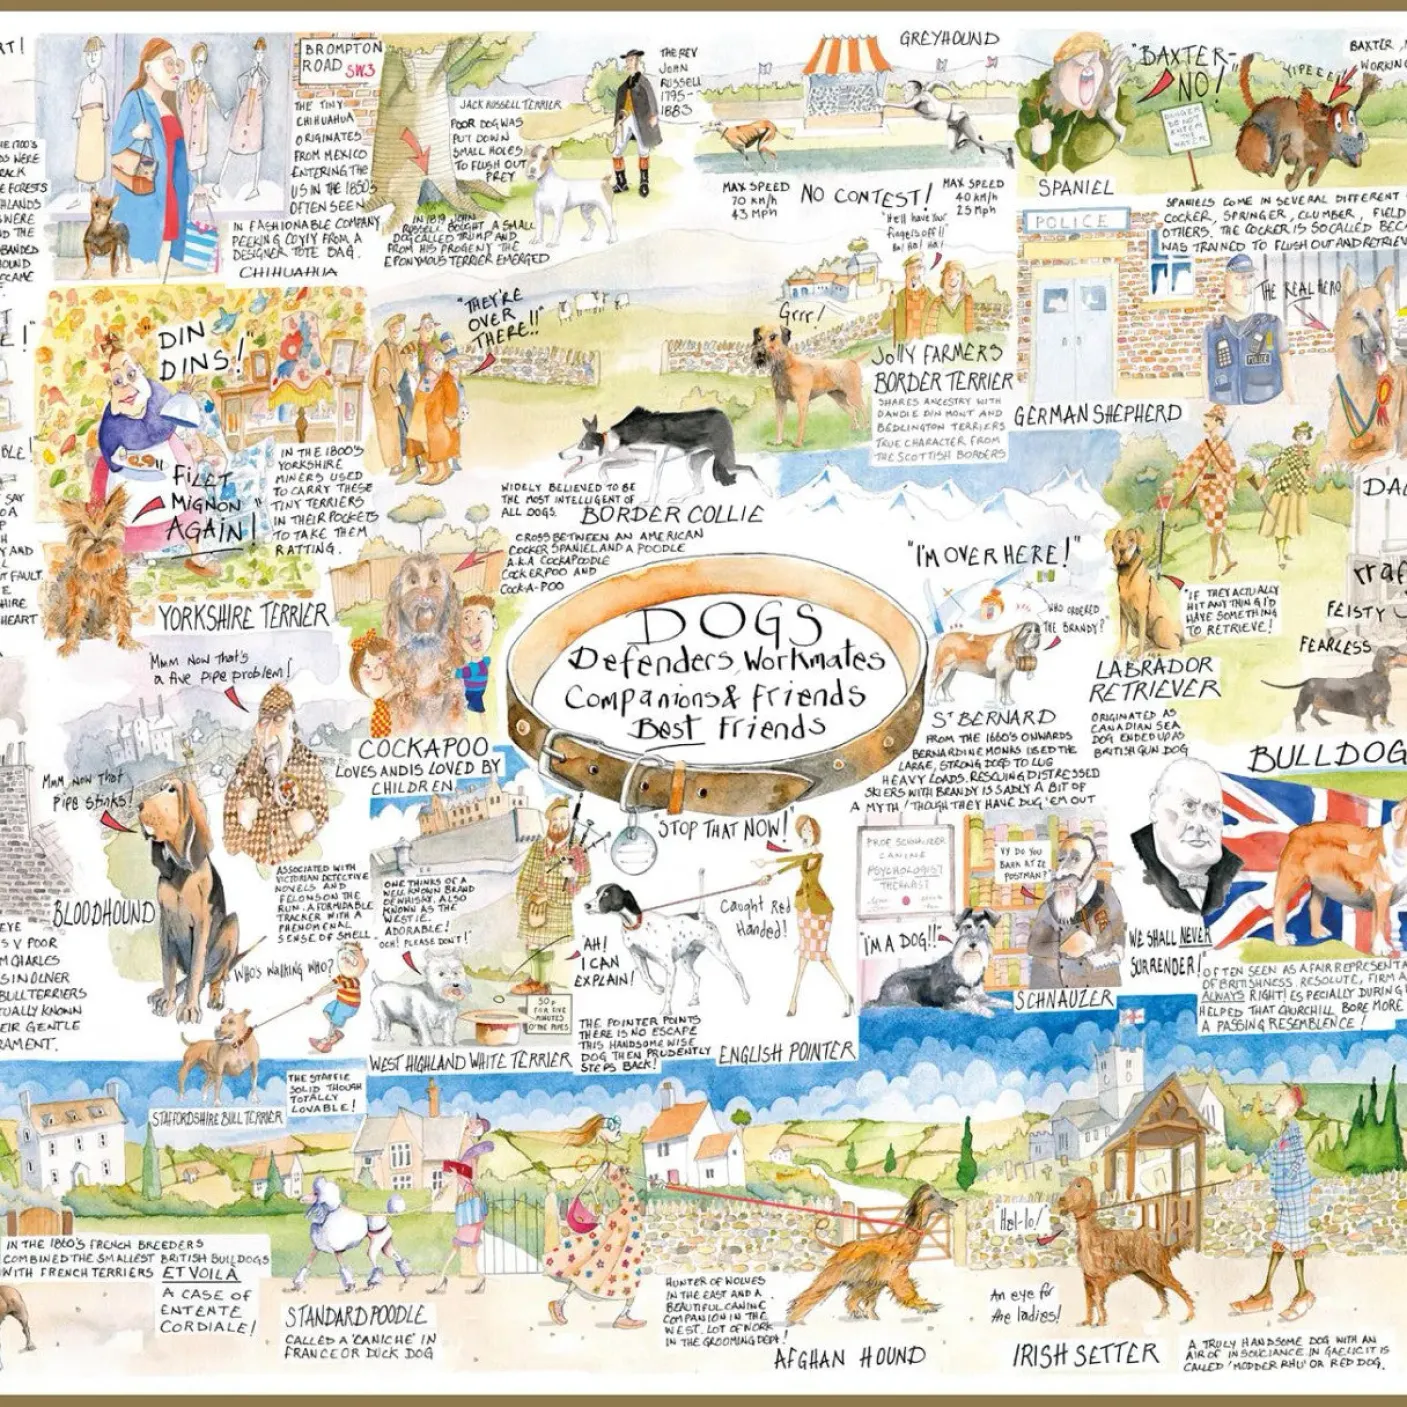 BROMPTON
ROAD SW3
THE TINY
CHIHUAHUA
ORIGINATES
FROM MEXICO
ENTERING THE
US IN THE 1850S
OFTEN SEEN
IN FASHIONABLE COMPANY
PEEKING COYLY FROM A
DESIGNER TOTE BAG.
CHIHUAHUA
JACK RUSSELL TERRIER
POOR DOG WAS
PUT DOWN
SMALL HOLES
TO FLUSH OUT
PREY
THE REV
JOHN
RUSSELL
1795-
1883
IN 1819 JOHN
RUSSELL BOUGHT A SMALL
DOG CALLED TRUMP AND
FROM HIS PROGENY THE
EPONYMOUS TERRIER EMERGED
GREYHOUND
MAX SPEED
70 KM/h
43 Mph
NO CONTEST!
MAX SPEED
40 KM/h
25 Mph
"BAXTER-
NO!"
YIPEEE!
BAXTER,
WORKING
DANGER
DO NOT
ENTER
THE
WATER
SPANIEL
SPANIELS COME IN SEVERAL DIFFERENT
COCKER, SPRINGER, CLUMBER, FIELD
OTHERS. THE COCKER IS SO CALLED
WAS TRAINED TO FLUSH OUT AND RETRIEVE
"He'll have your
fingers off!"
Ha! Ha! Ha!
POLICE
THE REAL HERO
POLICE
GERMAN SHEPHERD
DIN
DINS!
"FILET
MIGNON
AGAIN!"
IN THE 1800'S
YORKSHIRE
MINERS USED
TO CARRY THESE
TINY TERRIERS
IN THEIR POCKETS
TO TAKE THEM
RATTING.
YORKSHIRE TERRIER
"THEY'RE
OVER
THERE!!"
Grrr!
JOLLY FARMERS
BORDER TERRIER
SHARES ANCESTRY WITH
DANDIE DINMONT AND
BEDLINGTON TERRIERS
TRUE CHARACTER FROM
THE SCOTTISH BORDERS
WIDELY BELIEVED TO BE
THE MOST INTELLIGENT OF
ALL DOGS.
BORDER COLLIE
CROSS BETWEEN AN AMERICAN
COCKER SPANIEL AND A POODLE
A.K.A COCKAPOODLE
COCKERPOO AND
COCK-A-POO
COCKAPOO
LOVES AND IS LOVED BY
CHILDREN
DOGS
Defenders, Workmates
Companions & Friends
Best Friends
"I'M OVER HERE!"
"WHO ORDERED
THE BRANDY?"
ST BERNARD
FROM THE 1660'S ONWARDS
BERNARDINE MONKS USED THE
LARGE, STRONG DOGS TO LUG
HEAVY LOADS. RESCUING DISTRESSED
SKIERS WITH BRANDY IS SADLY A BIT OF
A MYTH! THOUGH THEY HAVE DUG 'EM OUT
"IF THEY ACTUALLY
HIT ANYTHING I'D
HAVE SOMETHING
TO RETRIEVE!
LABRADOR
RETRIEVER
ORIGINATED AS
CANADIAN SEA
DOG ENDED UP AS
BRITISH GUN DOG
FEISTY
FEARLESS
Mmm Now that's
a five pipe problem!
Mmm now that
pipe stinks!
BLOODHOUND
ASSOCIATED WITH
VICTORIAN DETECTIVE
NOVELS AND
FELONS ON THE
RUN. A FORMIDABLE
TRACKER WITH A
PHENOMENAL
SENSE OF SMELL
ONE THINKS OF A
WELL KNOWN BRAND
OF WHISKY. ALSO
KNOWN AS THE
WESTIE.
ADORABLE!
"OCH! PLEASE DON'T!"
50p
FOR FIVE
MINUTES
O' THE PIPES
WEST HIGHLAND WHITE TERRIER
"STOP THAT NOW!"
Caught Red
Handed!
"AH!
I CAN
EXPLAIN!
THE POINTER POINTS
THERE IS NO ESCAPE
THIS HANDSOME WISE
DOG THEN PRUDENTLY
STEPS BACK!
ENGLISH POINTER
PROF. SCHNAUZER
CANINE
PSYCHOLOGIST
THERAPIST
VY DO YOU
BARK AT ZE
POSTMAN?
"I'M A DOG!!"
SCHNAUZER
BULLDOG
WE SHALL NEVER
SURRENDER!
OFTEN SEEN AS A FAIR REPRESENTA
OF BRITISHNESS. RESOLUTE, FIRM
ALWAYS RIGHT! ESPECIALLY DURING
HELPED THAT CHURCHILL BORE MORE
A PASSING RESEMBLENCE!
WHO'S WALKING WHO?
THE STAFFIE
SOLID THOUGH
TOTALLY
LOVABLE!
STAFFORDSHIRE BULL TERRIER
IN THE 1860'S FRENCH BREEDERS
COMBINED THE SMALLEST BRITISH BULLDOGS
WITH FRENCH TERRIERS ET VOILA
A CASE OF
ENTENTE
CORDIALE!
STANDARD POODLE
CALLED A 'CANICHE' IN
FRANCE OR DUCK DOG
HUNTER OF WOLVES
IN THE EAST AND A
BEAUTIFUL CANINE
COMPANION IN THE
WEST. LOT OF WORK
IN THE GROOMING DEPT!
AFGHAN HOUND
"Hel-lo!"
An eye for
the ladies!
IRISH SETTER
A TRULY HANDSOME DOG WITH AN
AIR OF INSOUCIANCE. IN GAELIC IT IS
CALLED 'MODDER RHU' OR RED DOG.